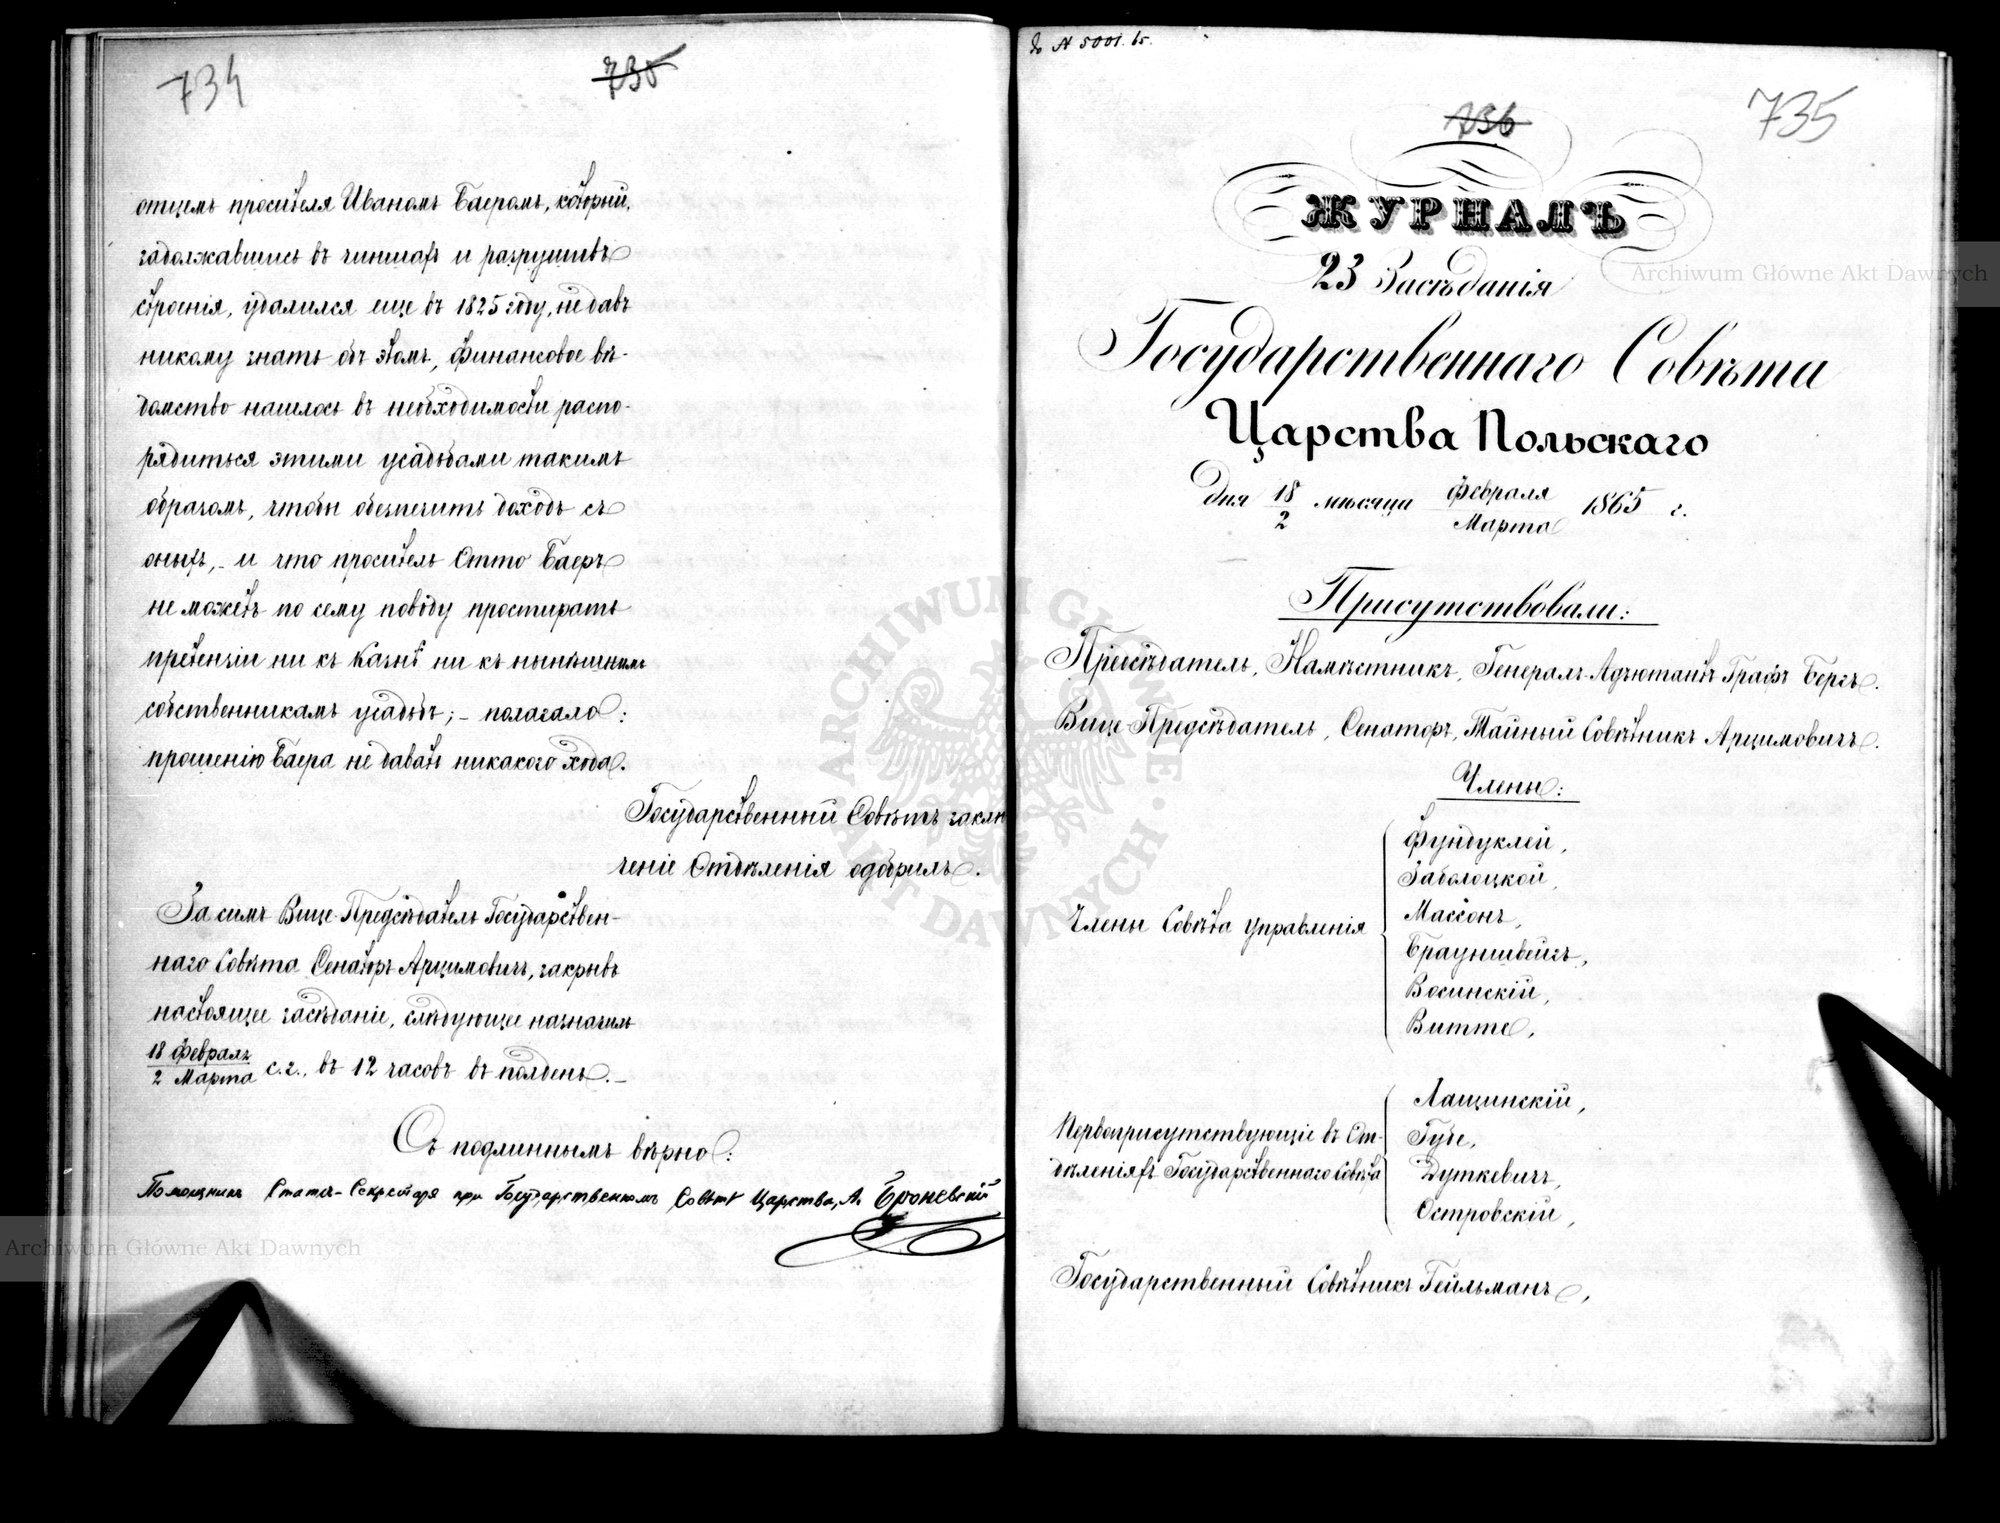 734
735
отцемъ просителя Иваномъ Баеромъ, который,
задолжавшись въ чиншахъ и разрушивъ
строенія, удалился еще въ 1825 году, не давъ
никому знать объ этомъ, Финансовое вѣ-
домство нашлось въ необходимости распо-
рядиться этими усадьбами такимъ
образомъ, чтобы обезпечить доходъ съ
оныхъ, - и что проситель Отто Баеръ
не можетъ по сему поводу простирать
претензіи ни къ Казнѣ ни къ нынѣшнимъ
собственникамъ усадьбъ; - полагало:
прошенію Баера не давать никакого хода.
Государственный Совѣтъ заклю
ченіе Отдѣленія одобрилъ.
За симъ Вице-Предсѣдатель Государствен-
наго Совѣта Сенаторъ Арцимовичъ, закрывъ
настоящее засѣданіе, слѣдующее назначилъ
18 Февраля
2 Марта с.г., въ 12 часовъ въ полдень. -
Съ подлиннымъ вѣрно:
Помощникъ Статсъ-Секретаря при Государственномъ Совѣтѣ Царства, А. Броневскій
до N 5001. 65.
735
736
ЖУРНАЛЪ
23 Засѣданія
Государственнаго Совѣта
Царства Польскаго
Дня 18/2 мѣсяца Февраля/Марта 1865 г.
Присутствовали:
Предсѣдатель, Намѣстникъ, Генералъ-Адъютантъ Графъ Бергъ.
Вице-Предсѣдатель, Сенаторъ, Тайный Совѣтникъ Арцимовичъ.
Члены:
Члены Совѣта Управленія
Фундуклей,
Заболоцкой,
Массонъ,
Брауншвейгъ,
Восинскій,
Витте,
Первоприсутствующіе въ От-
дѣленіяхъ Государственнаго Совѣта
Лащинскій,
Губе,
Дуткевичъ,
Островскій,
Государственный Совѣтникъ Гейльманъ,
Archiwum Główne Akt Dawnych
Archiwum Główne Akt Dawnych
ARCHIWUM GŁÓWNE AKT DAWNYCH